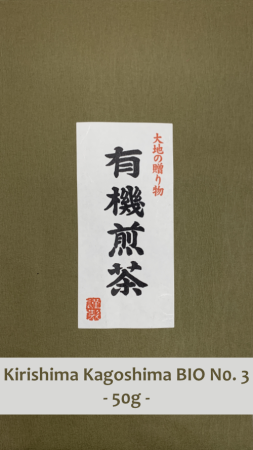 大地の贈り物
有機煎茶
謹製
Kirishima Kagoshima BIO No. 3
- 50g -